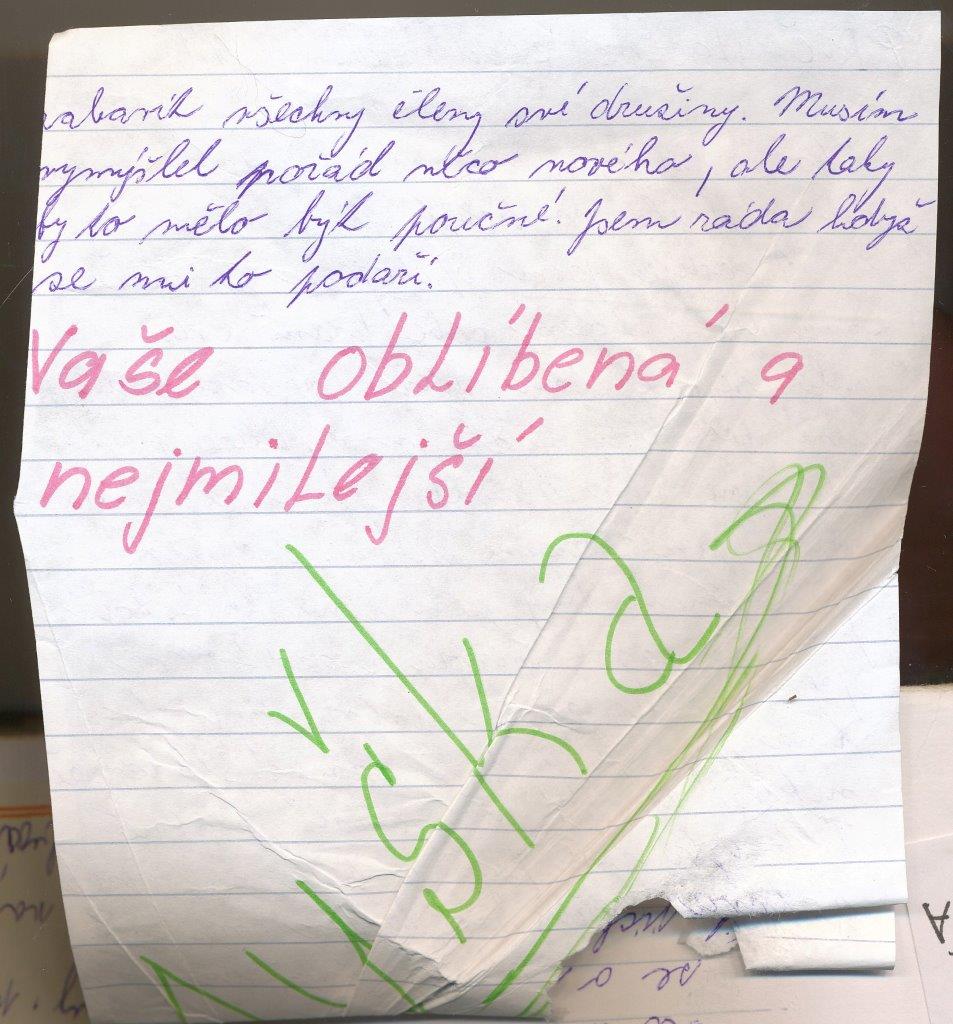 zabavit všechny členy své družiny. Musím
vymýšlet pořád něco nového, ale taky
by to mělo být poučné. Jsem ráda když
se mi to podaří.
Vaše oblíbená a
nejmilejší